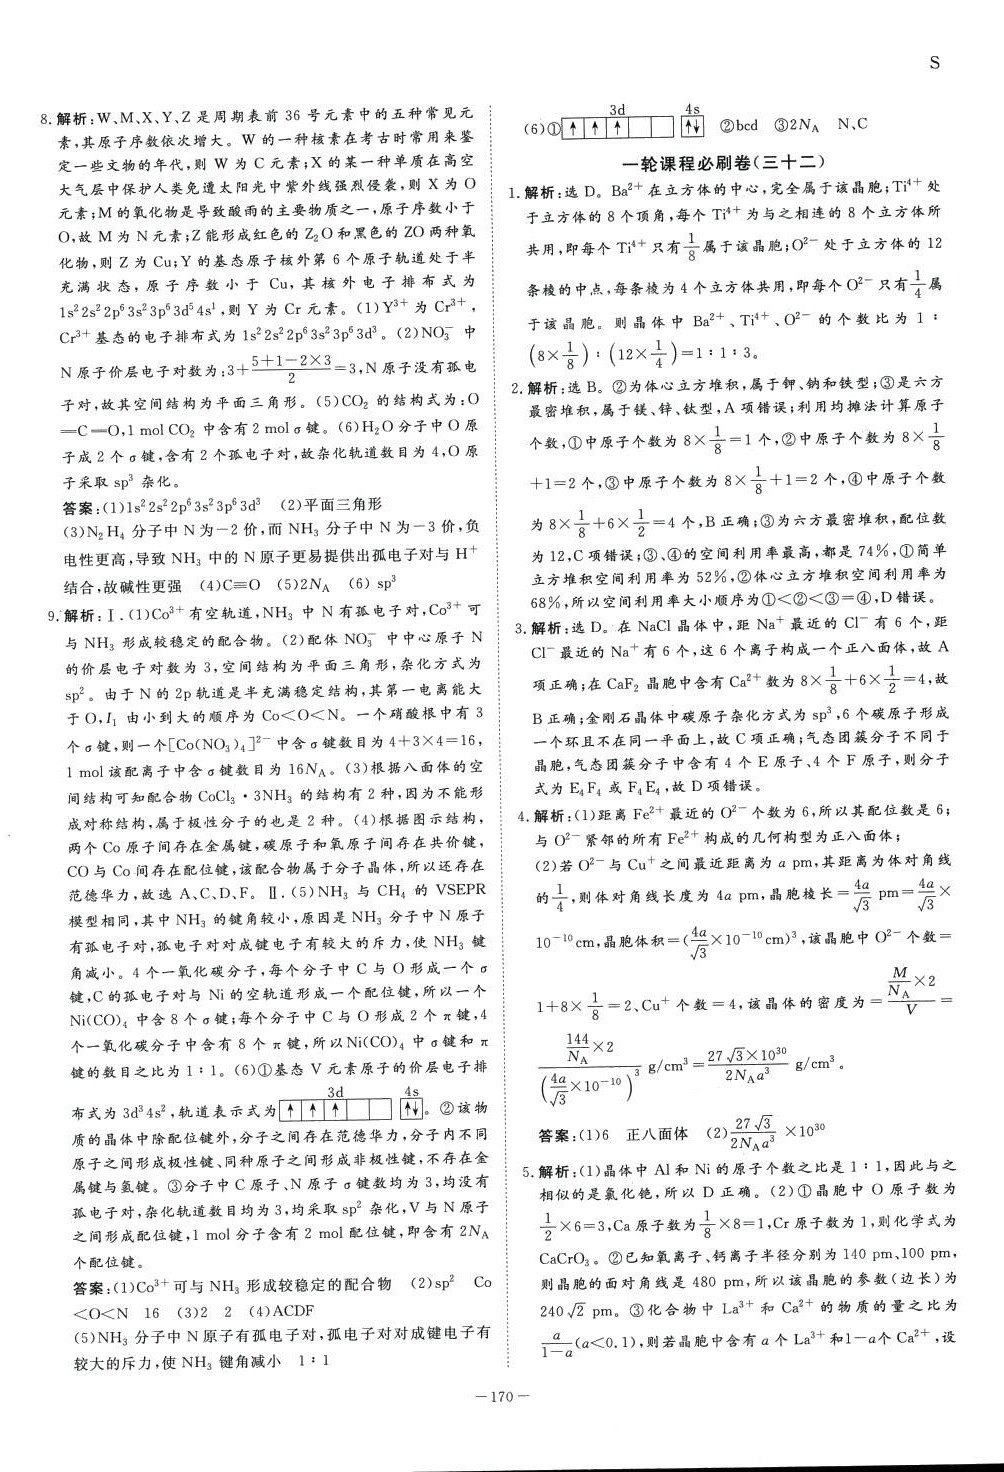 S
8. 解析:W、M、X、Y、Z 是周期表前 36 号元素中的五种常见元
素,其原子序数依次增大。W 的一种核素在考古时常用来鉴
定一些文物的年代,则 W 为 C 元素;X 的某一种单质在高空
大气层中保护人类免遭太阳光中紫外线强烈侵袭,则 X 为 O
元素;M 的氧化物是导致酸雨的主要物质之一,原子序数小于
O,故 M 为 N 元素;Z 能形成红色的 Z₂O 和黑色的 ZO 两种氧
化物,则 Z 为 Cu;Y 的基态原子核外第 6 个原子轨道处于半
充满状态,原子序数小于 Cu,其核外电子排布式为
1s²2s²2p⁶3s²3p⁶3d⁵4s¹,则 Y 为 Cr 元素。(1)Y³⁺ 为 Cr³⁺,
Cr³⁺ 基态的电子排布式为 1s²2s²2p⁶3s²3p⁶3d³。(2)NO₃⁻ 中
N 原子价层电子对数为:3+(5+1-2×3)/2=3,N 原子没有孤电
子对,故其空间结构为平面三角形。(5)CO₂ 的结构式为:O
=C=O,1 mol CO₂ 中含有 2 mol σ 键。(6)H₂O 分子中 O 原
子成 2 个 σ 键,含有 2 个孤电子对,故杂化轨道数目为 4,O 原
子采取 sp³ 杂化。
答案:(1)1s²2s²2p⁶3s²3p⁶3d³ (2)平面三角形
(3)N₂H₄ 分子中 N 为-2 价,而 NH₃ 分子中 N 为-3 价,负
电性更高,导致 NH₃ 中的 N 原子更易提供出孤电子对与 H⁺
结合,故碱性更强 (4)C≡O (5)2Nᴀ (6) sp³
9. 解析:Ⅰ.(1)Co³⁺ 有空轨道,NH₃ 中 N 有孤电子对,Co³⁺ 可
与 NH₃ 形成较稳定的配合物。(2)配体 NO₃⁻ 中中心原子 N
的价层电子对数为 3,空间结构为平面三角形,杂化方式为
sp²。由于 N 的 2p 轨道是半充满稳定结构,其第一电离能大
于 O,I₁ 由小到大的顺序为 Co<O<N。一个硝酸根中有 3
个 σ 键,则一个[Co(NO₃)₄]²⁻ 中含 σ 键数目为 4+3×4=16,
1 mol 该配离子中含 σ 键数目为 16Nᴀ。(3)根据八面体的空
间结构可知配合物 CoCl₃·3NH₃ 的结构有 2 种,因为不能形
成对称结构,属于极性分子的也是 2 种。(4)根据图示结构,
两个 Co 原子间存在金属键,碳原子和氧原子间存在共价键,
CO 与 Co 间存在配位键,该配合物属于分子晶体,所以还存在
范德华力,故选 A、C、D、F。Ⅱ.(5)NH₃ 与 CH₄ 的 VSEPR
模型相同,其中 NH₃ 的键角较小,原因是 NH₃ 分子中 N 原子
有孤电子对,孤电子对对成键电子有较大的斥力,使 NH₃ 键
角减小。4 个一氧化碳分子,每个分子中 C 与 O 形成一个 σ
键,C 的孤电子对与 Ni 的空轨道形成一个配位键,所以一个
Ni(CO)₄ 中含 8 个 σ 键;每个分子中 C 与 O 形成 2 个 π 键,4
个一氧化碳分子中含有 8 个 π 键,所以 Ni(CO)₄ 中 σ 键和 π
键的数目之比为 1∶1。(6)①基态 V 元素原子的价层电子排
3d 4s
布式为 3d³4s²,轨道表示式为 ↑ ↑ ↑ ↑↓ 。②该物
质的晶体中除配位键外,分子之间存在范德华力,分子内不同
原子之间形成极性键、同种原子之间形成非极性键,不存在金
属键与氢键。③分子中 C 原子、N 原子 σ 键数均为 3,均没有
孤电子对,杂化轨道数目均为 3,均采取 sp² 杂化,V 与 N 原子
之间形成配位键,1 mol 分子含有 2 mol 配位键,即含有 2Nᴀ
个配位键。
答案:(1)Co³⁺ 可与 NH₃ 形成较稳定的配合物 (2)sp² Co
<O<N 16 (3)2 2 (4)ACDF
(5)NH₃ 分子中 N 原子有孤电子对,孤电子对对成键电子有
较大的斥力,使 NH₃ 键角减小 1∶1
3d 4s
(6)① ↑ ↑ ↑ ↑↓ ②bcd ③2Nᴀ N、C
一轮课程必刷卷(三十二)
1. 解析:选 D。Ba²⁺ 在立方体的中心,完全属于该晶胞;Ti⁴⁺ 处
于立方体的 8 个顶角,每个 Ti⁴⁺ 为与之相连的 8 个立方体所
共用,即每个 Ti⁴⁺ 只有 1/8 属于该晶胞;O²⁻ 处于立方体的 12
条棱的中点,每条棱为 4 个立方体共用,即每个 O²⁻ 只有 1/4 属
于该晶胞。则晶体中 Ba²⁺、Ti⁴⁺、O²⁻ 的个数比为 1∶
(8×1/8)∶(12×1/4)=1∶1∶3。
2. 解析:选 B。②为体心立方堆积,属于钾、钠和铁型;③是六方
最密堆积,属于镁、锌、钛型,A 项错误;利用均摊法计算原子
个数,①中原子个数为 8×1/8=1 个,②中原子个数为 8×1/8
+1=2 个,③中原子个数为 8×1/8+1=2 个,④中原子个数
为 8×1/8+6×1/2=4 个,B 正确;③为六方最密堆积,配位数
为 12,C 项错误;③、④的空间利用率最高,都是 74%,①简单
立方堆积空间利用率为 52%,②体心立方堆积空间利用率为
68%,所以空间利用率大小顺序为①<②<③=④,D 错误。
3. 解析:选 D。在 NaCl 晶体中,距 Na⁺ 最近的 Cl⁻ 有 6 个,距
Cl⁻ 最近的 Na⁺ 有 6 个,这 6 个离子构成一个正八面体,故 A
项正确;在 CaF₂ 晶胞中含有 Ca²⁺ 数为 8×1/8+6×1/2=4,故
B 正确;金刚石晶体中碳原子杂化方式为 sp³,6 个碳原子形成
一个环且不在同一平面上,故 C 项正确;气态团簇分子不同于
晶胞,气态团簇分子中含有 4 个 E 原子、4 个 F 原子,则分子
式为 E₄F₄ 或 F₄E₄,故 D 项错误。
4. 解析:(1)距离 Fe²⁺ 最近的 O²⁻ 个数为 6,所以其配位数是 6;
与 O²⁻ 紧邻的所有 Fe²⁺ 构成的几何构型为正八面体;
(2)若 O²⁻ 与 Cu⁺ 之间最近距离为 a pm,其距离为体对角线
的 1/4,则体对角线长度为 4a pm,晶胞棱长=4a/√3 pm=4a/√3×
10⁻¹⁰ cm,晶胞体积=(4a/√3×10⁻¹⁰ cm)³,该晶胞中 O²⁻ 个数=
1+8×1/8=2、Cu⁺ 个数=4,该晶体的密度为=(M/Nᴀ×2)/V=
(144/Nᴀ×2)/(4a/√3×10⁻¹⁰)³ g/cm³=27√3×10³⁰/2Nᴀa³ g/cm³。
答案:(1)6 正八面体 (2)27√3/2Nᴀa³×10³⁰
5. 解析:(1)晶体中 Al 和 Ni 的原子个数之比是 1∶1,因此与之
相似的是氯化铯,所以 D 正确。(2)①晶胞中 O 原子数为
1/2×6=3,Ca 原子数为 1/8×8=1,Cr 原子数为 1,则化学式为
CaCrO₃。②已知氧离子、钙离子半径分别为 140 pm、100 pm,
则晶胞的面对角线是 480 pm,所以该晶胞的参数(边长)为
240√2 pm。③化合物中 La³⁺ 和 Ca²⁺ 的物质的量之比为
a/(1-a)(a<0.1),则若晶胞中含有 a 个 La³⁺ 和1-a个 Ca²⁺,设
—170—